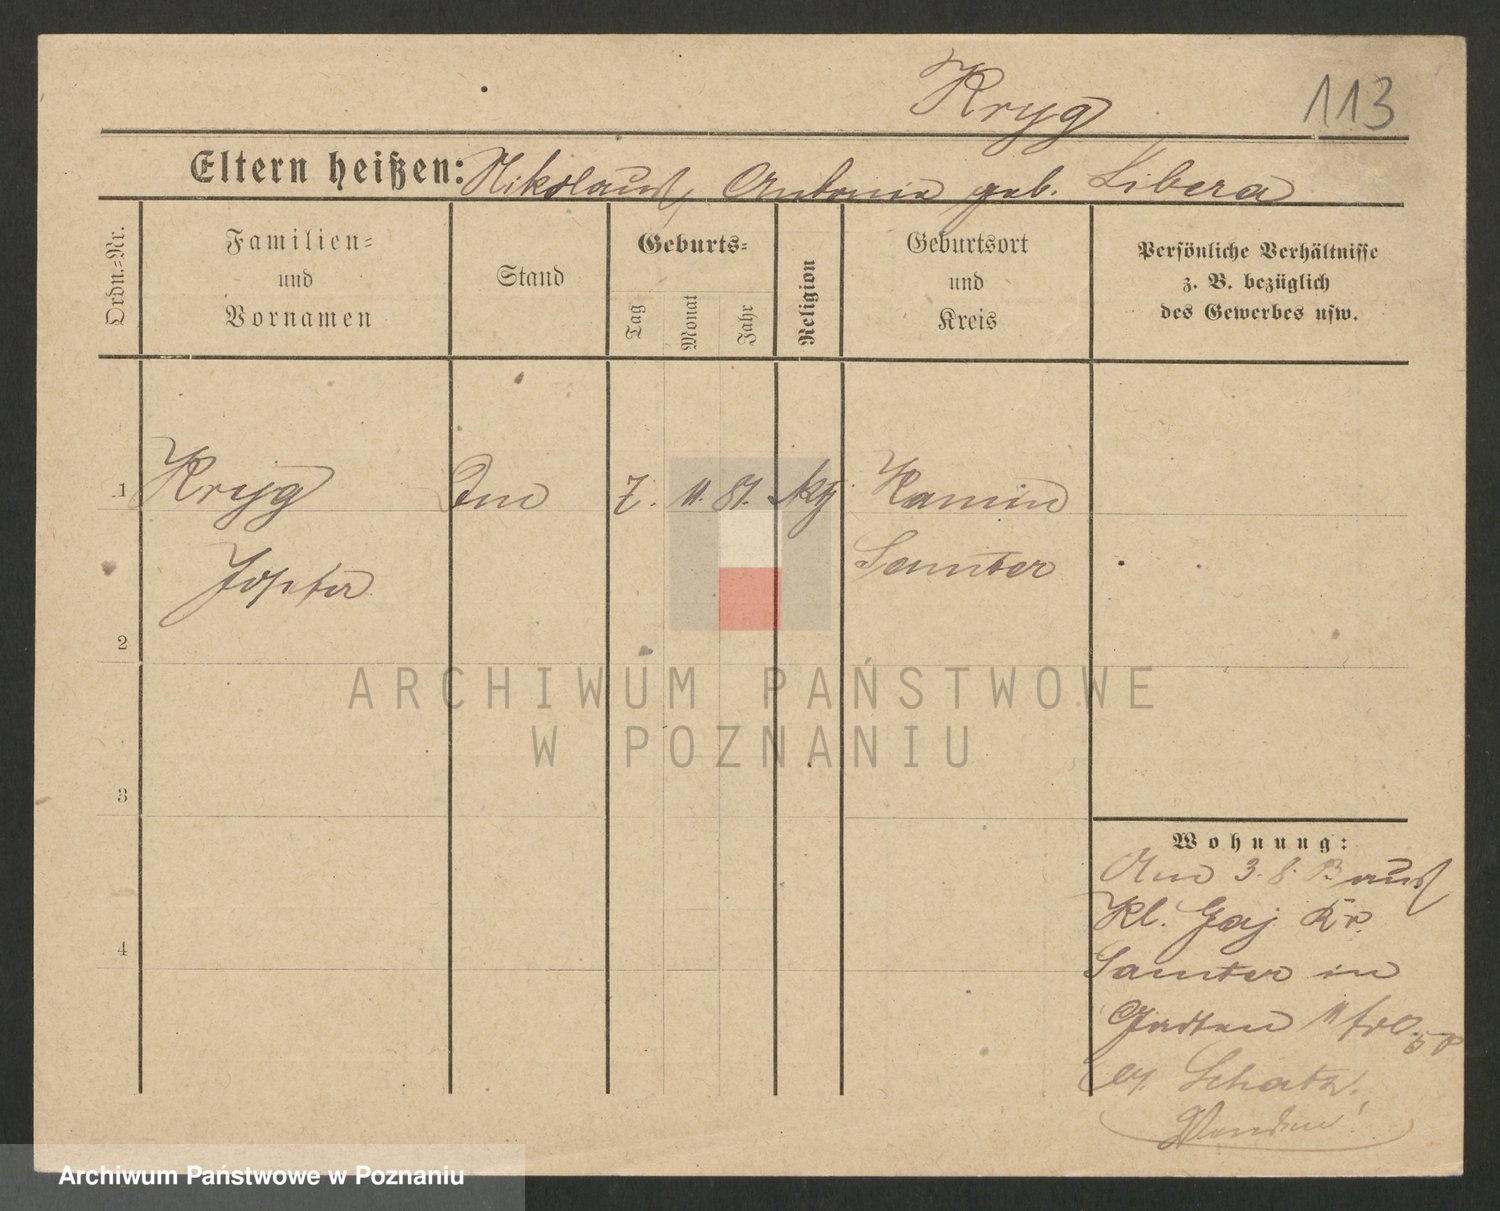 Kryg 113
Eltern heißen: Nikolaus, Antonie geb. Libera
Ordn.-Nr.
Familien-
und
Vornamen
Stand
Geburts-
Tag
Monat
Jahr
Religion
Geburtsort
und
Kreis
Persönliche Verhältnisse
z. B. bezüglich
des Gewerbes usw.
1 Kryg 7. 11. 81. Kamin
Samter
2
3
4
Wohnung:
3. 8. aus
Kl. Gaj Kr
Samter in
Schatz
ARCHIWUM PAŃSTWOWE
W POZNANIU
Archiwum Państwowe w Poznaniu